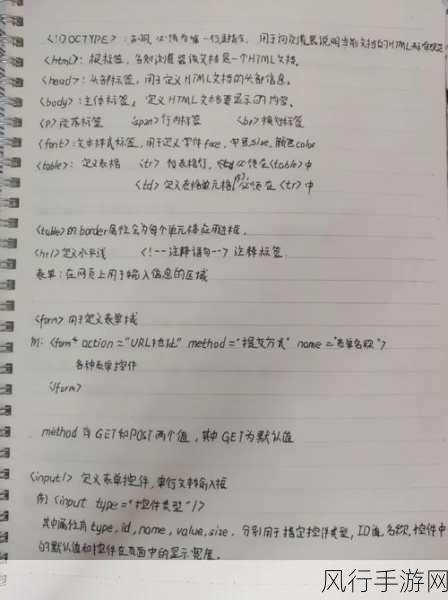 <!DOCTYPE>: 必须 用于向浏览器说明当前文档的HTML标准规范
<html>: 根标签, 告知浏览器该文档是一个HTML文档.
<head>: 头部标签, 用于定义HTML文档的头部信息.
<body>: 主体标签, 定义HTML文档要显示的内容.
<p> 段落标签 <span> 行内标签 <br> 换行标签
<font>: 文本样式标签, 用于定义字体face, 字号size, 颜色color
<table>: 定义表格 <tr> 行, 必须在<table>中
<td> 定义表格单元格, 必须在<tr>中
<table>的border属性会为每个单元格应用边框.
<hr/> 定义水平线 <!--注释语句--> 注释标签.
表单: 在网页上用于输入信息的区域
<form> 用于定义表单域
例: <form action="URL地址" method="提交方式" name="表单名称">
各种表单控件
</form>
method 有 GET和POST两个值, 其中GET为默认值
<input/> 定义表单控件, 单行文本输入框
例) <input type="控件类型"/>
其中属性有type, id, name, value, size. 分别用于指定控件类型, ID值, 名称, 控件中
的默认值和控件在页面中的显示宽度.
风行手游网